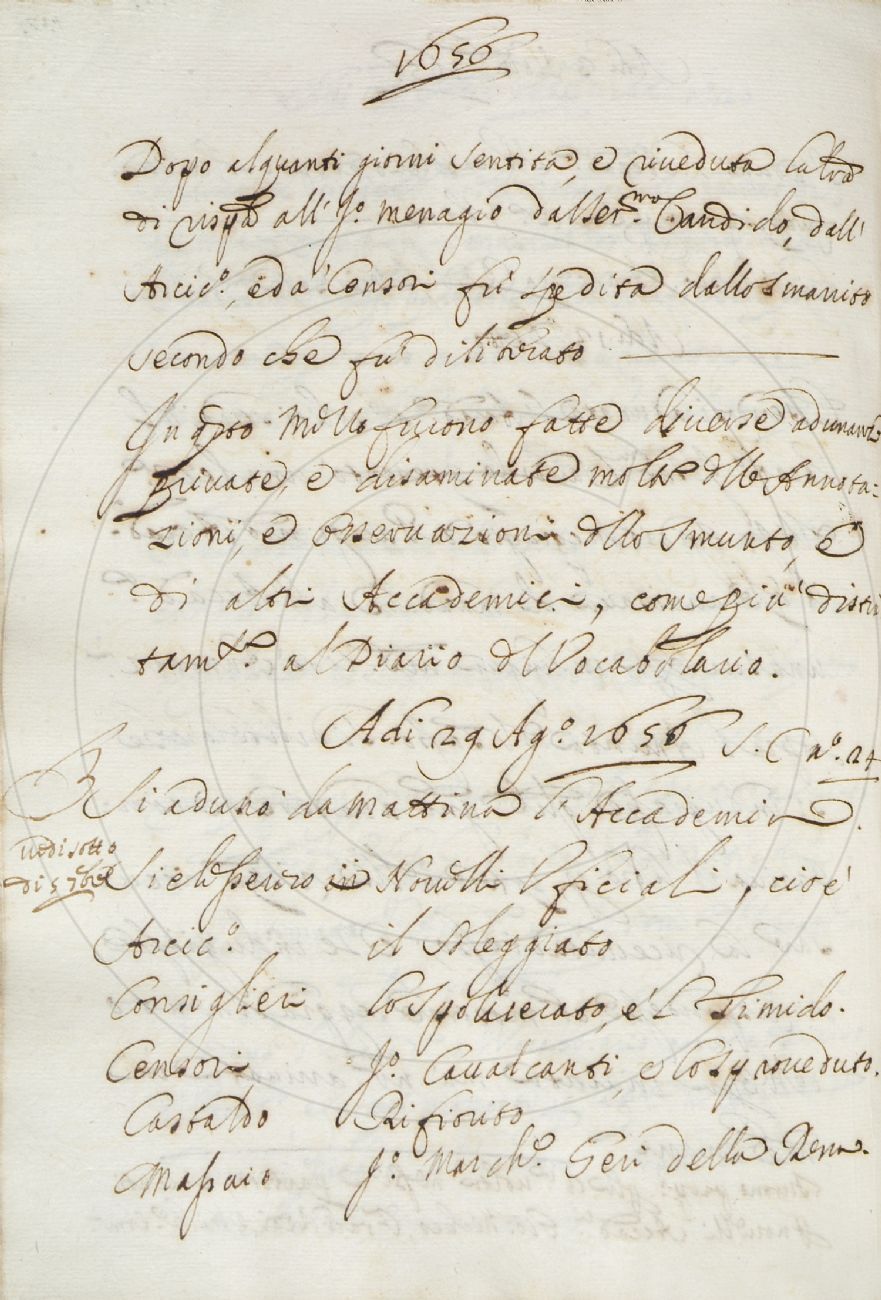 1656
Dopo alquanti giorni sentita, e riueduta la lrã
di rispta all' Sr. Menagio dal Sermo. Candido, dall'
Arcico., e da' Censori fù spedita dallo Smarrito
secondo che fù diliberato
In qsto Mdlo furono fatte diuerse adunanze
priuate, e disaminate molte dlle Annota:
zioni, e osseruazioni dllo Smunto, e
di altri Accademici, come più distin
tamte. al Diario dl Vocabolario.
Adi 29 Ago. 1656 S. C no. 24
Si adunò da mattina l'Accademia.
uedi sotto
di 5 7bre
Si elessero i Nouelli Vficiali, cioè
Arcico. il Maneggiato
Consiglieri lo Spoluerato, e 'l Timido.
Censori Sr. Caualcanti, e lo Sproueduto.
Castaldo Rifiorito
Massaio Sr. March. Geri della Rena.